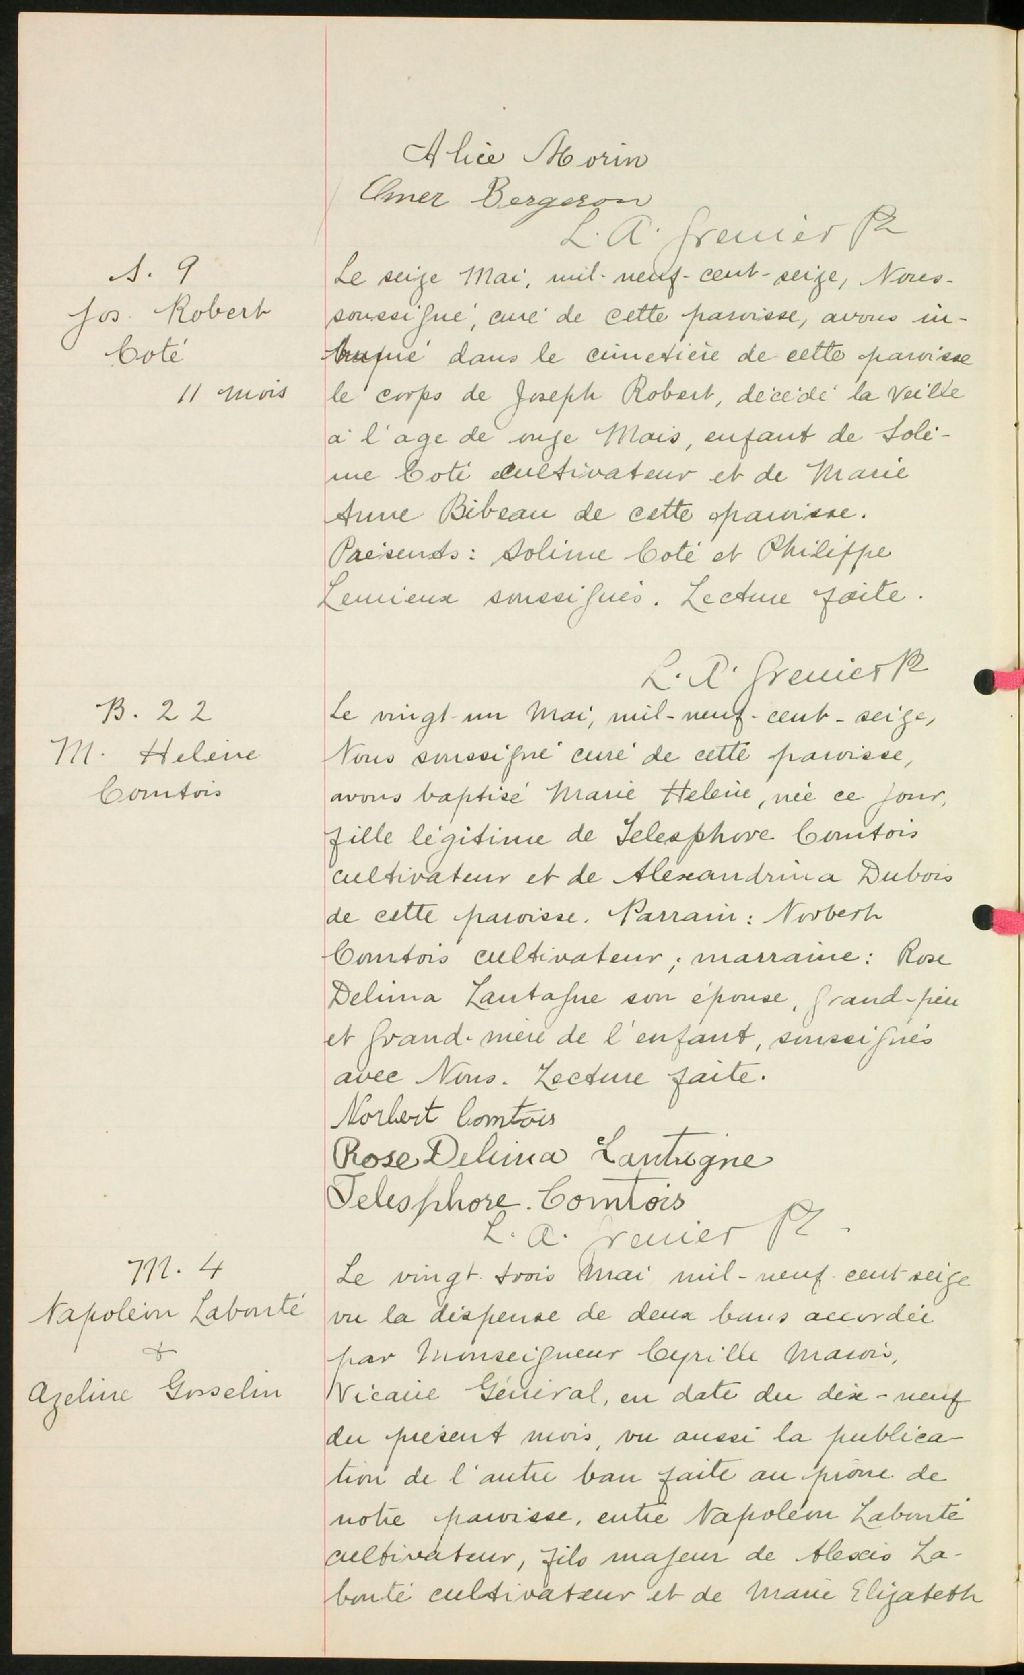 Alice Morin
Omer Bergeron
L. A. Grenier Ptr
S. 9
Jos. Robert
Coté
11 mois
Le seize Mai, mil-neuf-cent-seize, Nous-
soussigné, curé de cette paroisse, avons in-
humé dans le cimetière de cette paroisse
le corps de Joseph Robert, décédé la veille
à l'age de onze Mois, enfant de Soli-
me Coté cultivateur et de Marie
Anne Bibeau de cette paroisse.
Présents: Solime Coté et Philippe
Lemieux soussignés. Lecture faite.
L. A. Grenier Ptr
B. 22
M. Helène
Comtois
Le vingt-un Mai, mil-neuf-cent-seize,
Nous soussigné curé de cette paroisse,
avons baptisé Marie Helène, née ce jour,
fille légitime de Telesphore Comtois
cultivateur et de Alexandrina Dubois
de cette paroisse. Parrain: Norbert
Comtois cultivateur; marraine: Rose
Delima Lantagne son épouse, grand-père
et grand-mère de l'enfant, soussignés
avec Nous. Lecture faite.
Norbert Comtois
Rose Delima Lantigne
Telesphore Comtois
L. A. Grenier Ptr
M. 4
Napoléon Labonté
&
Azeline Gosselin
Le vingt-trois Mai mil-neuf-cent seize
vu la dispense de deux bans accordée
par Monseigneur Cyrille Marois,
Vicaire Général, en date du dix-neuf
du présent mois, vu aussi la publica-
tion de l'autre ban faite au prône de
notre paroisse, entre Napoléon Labonté
cultivateur, fils majeur de Alexis La-
bonté cultivateur et de Marie Elizabeth